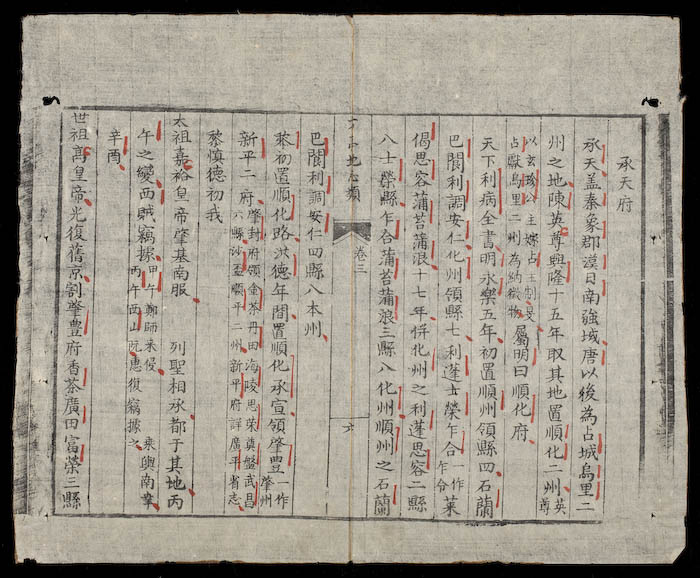 承天府
承天盖秦象郡漢日南強域唐以後為占城烏里二
州之地陳英尊興隆十五年取其地置順化二州英尊
以玄珍公主嫁占主制旻
占獻烏里二州為納徵物
屬明曰順化府
天下利病全書明永樂五年初置順州領縣四石蘭
巴閬利調安仁化州領縣七利蓬士榮乍合一作乍合茶
偈思容蒲苔蒲浪十七年併化州之利蓬思容二縣
八士榮縣乍合蒲苔蒲浪三縣八化州順州之石蘭
卷三
六
巴閬利調安仁四縣八本州
黎初置順化路洪德年間置順化承宣領肇豊一作肇州
新平二府
肇封府領金茶丹田海陵思榮奠盤武昌
六縣沙盃順平二州新平府詳廣平省志
黎慎德初我
太祖嘉裕皇帝肇基南服 列聖相承都于其地丙
午之變西賊竊據
甲午鄭師来侵 乘輿南幸
丙午西山阮惠復竊據之
辛酉
世祖高皇帝光復舊京割肇豊府香茶廣田富榮三縣